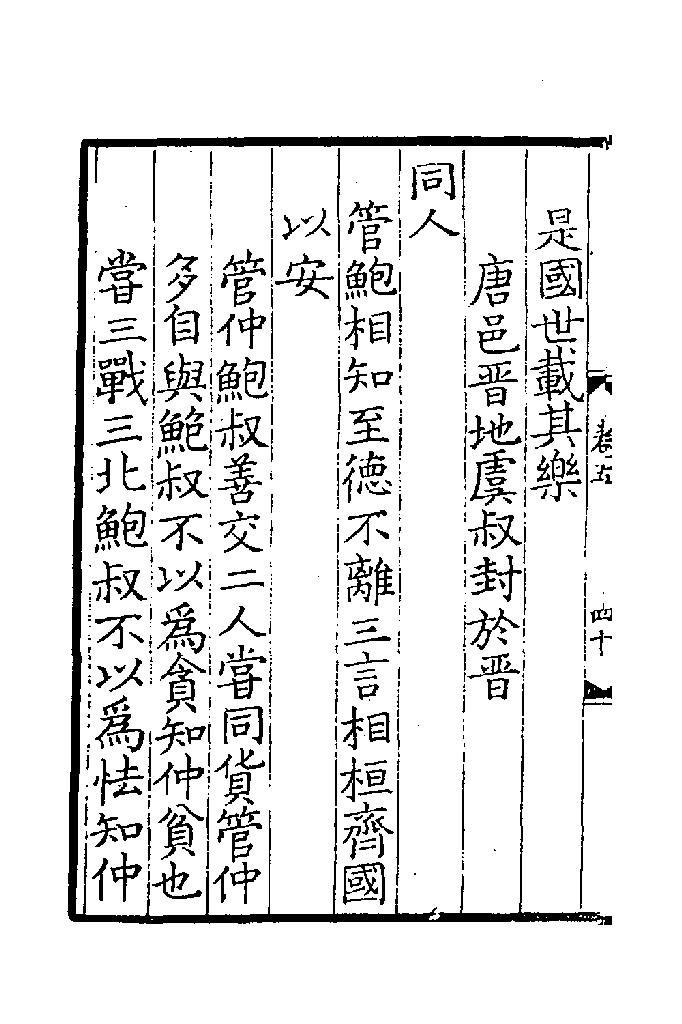 卷五
四十
是國世載其樂
唐邑晋地虞叔封於晋
同人
管鮑相知至德不離三言相桓齊國
以安
管仲鮑叔善交二人甞同貨管仲
多自與鮑叔不以爲貪知仲貧也
甞三戰三北鮑叔不以爲怯知仲